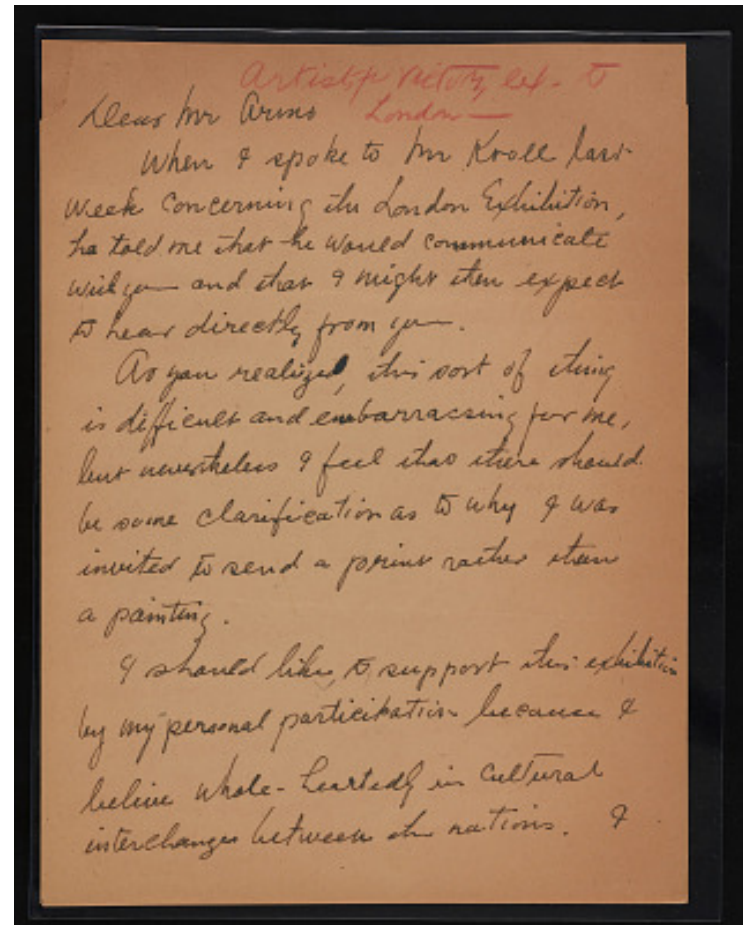 Artists for Victory ex. to
London—
Dear Mr Arms
When I spoke to Mr Kroll last
week concerning the London Exhibition,
he told me that he would communicate
with you and that I might then expect
to hear directly from you.
As you realized, this sort of thing
is difficult and embarrassing for me,
but nevertheless I feel that there should
be some clarification as to why I was
invited to send a print rather than
a painting.
I should like to support this exhibition
by my personal participation because I
believe whole-heartedly in cultural
interchanges between the nations. I